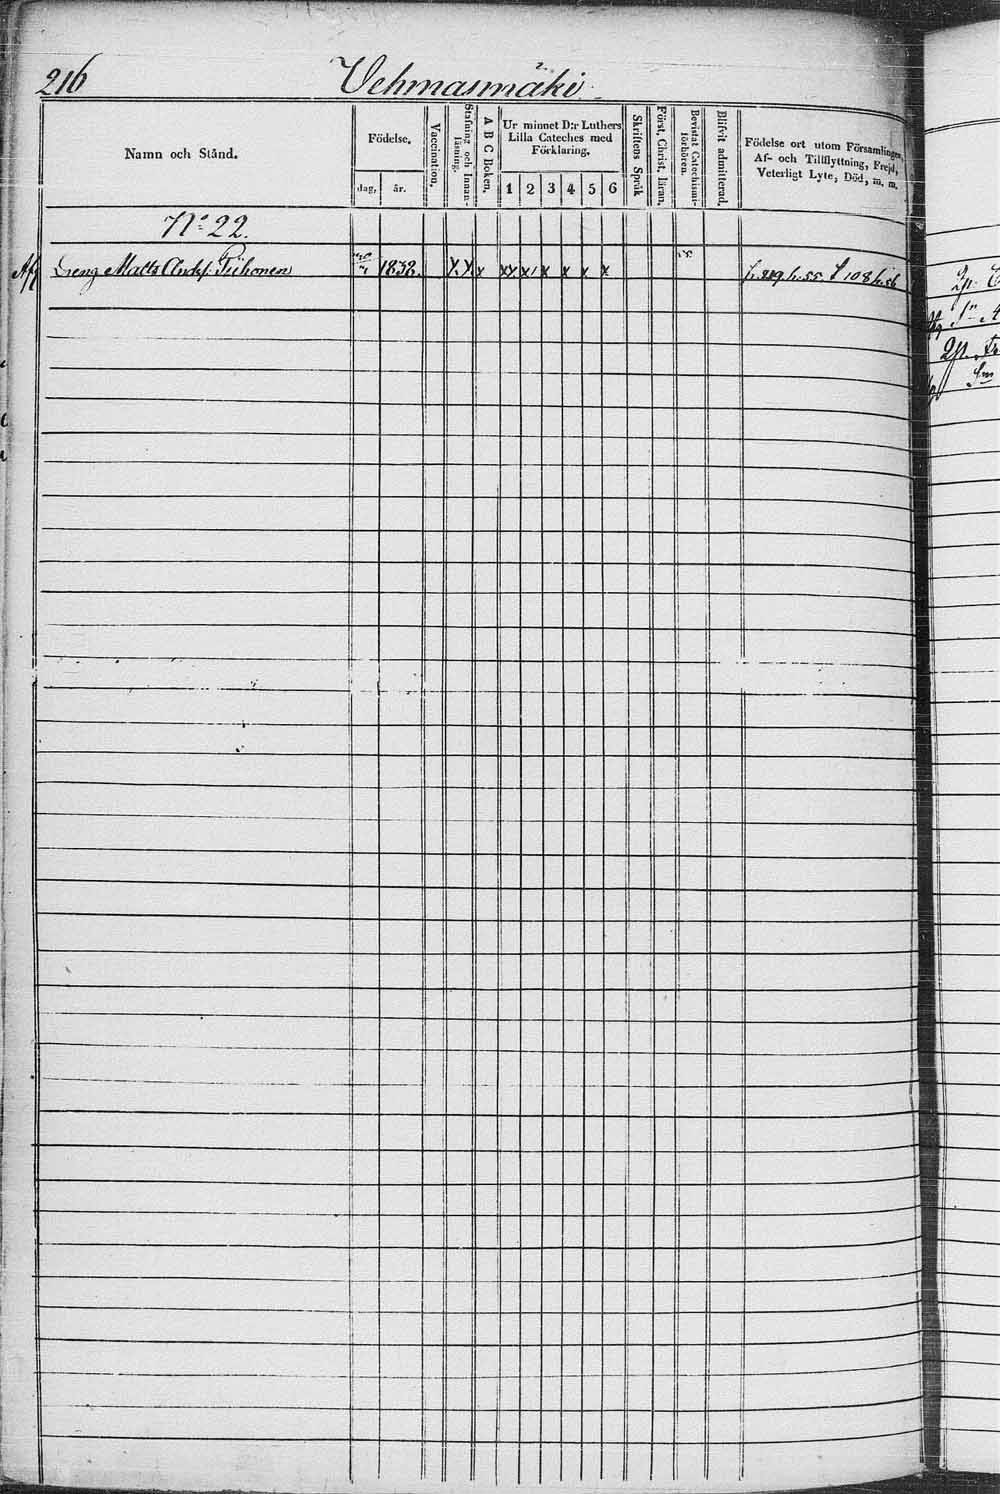 216 Vehmasmäki
Namn och Stånd.
Födelse.
dag,
år.
Vaccination.
Stafning och Innanläsning.
A B C Boken.
Ur minnet D:r Luthers
Lilla Cateches med
Förklaring.
1 2 3 4 5 6
Skriftens Språk
Först. Christ. läran.
Bevistat Catechismi-förhören.
Blifvit admitterad.
Födelse ort utom Församlingen,
Af- och Tillflyttning, Frejd,
Veterligt Lyte, Död, m. m.
N:o 22.
Dreng Matts Piihonen 1838. x x x xx x x x x x 55 fr. 219 h. 55. t 108 h. 56